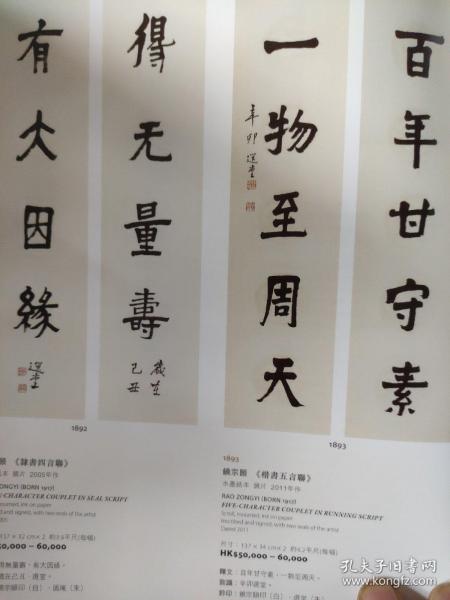 百年甘守素
一物至周天
辛卯 選堂
得无量壽
歲在
己丑
有大因緣
選堂
1892
1893
頤 《隸書四言聯》
紙本 鏡片 2005年作
ZONGYI (BORN 1917)
-CHARACTER COUPLET IN SEAL SCRIPT
mounted, ink on paper
d and signed, with two seals of the artist
005
137 × 32 cm × 2 約3.9平尺(每幅)
0,000 – 60,000
得無量壽，有大因緣。
歲在己丑，選堂。
饒宗頤印（白）、
1893
饒宗頤 《楷書五言聯》
水墨紙本 鏡片 2011年作
RAO ZONGYI (BORN 1917)
FIVE-CHARACTER COUPLET IN RUNNING SCRIPT
Scroll, mounted, ink on paper
Inscribed and signed, with two seals of the artist
Dated 2011
尺寸：137 × 34 cm × 2 約4.2平尺(每幅)
HK$50,000 – 60,000
釋文：百年甘守素，一物至周天。
款識：辛卯選堂。
鈐印：饒宗頤印（白）、選堂（朱）
孔夫子旧书网